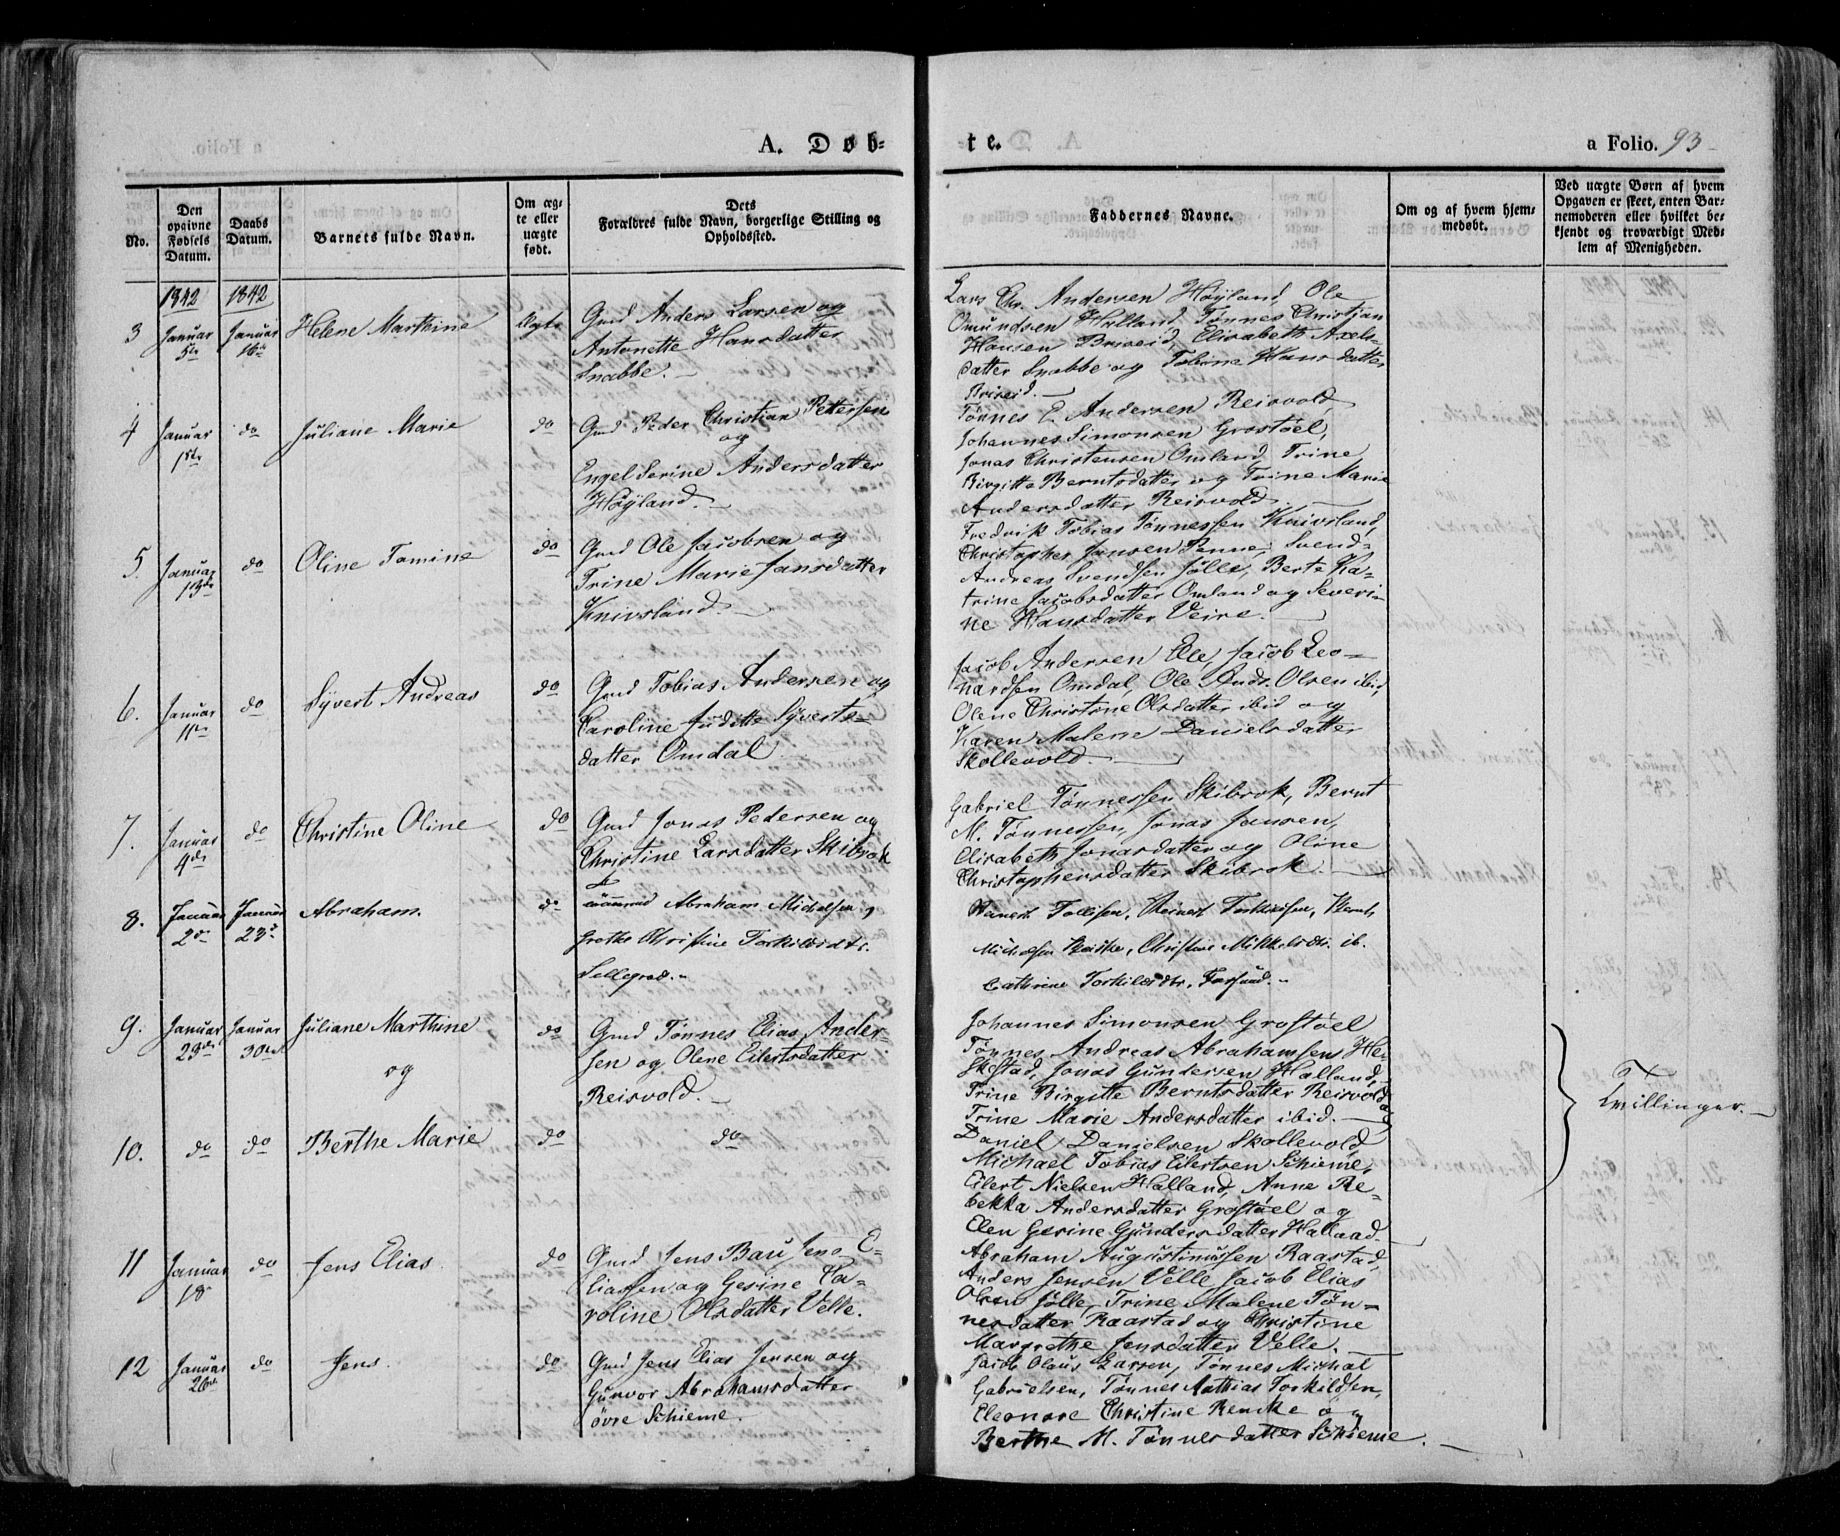 A. Døb-
te.
a Folio. 93
No.
Den opgivne Fødsels Datum.
Daabs Datum.
Barnets fulde Navn.
Om ægte eller uægte født.
Dets
Forældres fulde Navn, borgerlige Stilling og
Opholdssted.
Faddernes Navne.
Om og af hvem hjemmedøbt.
Ved uægte Børn af hvem
Opgaven er skeet, enten Bar-
nemoderen eller hvilket be-
kjendt og troværdigt Med-
lem af Menigheden.
1842 1842
3 Januar 5te Januar 16de Helene Marthine Ægte
Gmd Anders Larsen og
Antonette Hansdatter
Snabbe.
Lars Chr. Andersen Høyland, Ole
Omundsen Halland, Tønnes Christian
Hansen Briseid, Elisabeth Axels-
datter Snabbe og Tobine Hansdatter
Briseid.
4 Januar 1ste do Juliane Marie do
Gmd Peder Christian Pettersen
og
Engel Serine Andersdatter
Høyland.
Tønnes E. Andersen Reisvold
Johannes Simonsen Grostøel,
Jonas Christensen Omland, Trine
Birgitte Berntsdatter og Trine Marie
Andersdatter Reisvold.
5. Januar 13de do Oline Tomine do
Gmd Ole Jacobsen og
Trine Marie Jansdatter
Knivsland.
Fredrik Tobias Tønnessen Knivsland,
Christopher Jansen Penne, Svend
Andreas Svendsen Jølle, Berte Ka-
trine Jacobsdatter Omland og Severi-
ne Hansdatter Veire.
6. Januar 11te do Syvert Andreas do
Gmd Tobias Andersen og
Caroline Juditte Syverts-
datter Omdal
Jacob Andersen Elle, Jacob Leo-
nardsen Omdal, Ole Ands. Olsen ibid,
Olene Christine Olsdatter ibid og
Karen Malene Danielsdatter
Skollevold.
7. Januar 4de do Christine Oline do
Gmd Jonas Pedersen og
Christine Larsdatter Skibrok
Gabriel Tønnessen Skibrok, Bernt
M. Tønnessen, Jonas Jansen,
Elisabeth Jonasdatter og Oline
Christophersdatter Skibrok.
8. Januar 2den Januar 23de Abraham. do
Abraham Michelsen og
Grethe Christine Torkildsdtr.
Sellegrod.
Reinert Tollisen, Reinert Torkildsen, Bernt
Michelsen, Christine Mikkelsdtr. ib.
Cathrine Torkildsdtr. Farsund.
9. Januar 23de Januar 30te Juliane Marthine
og
do
Gmd Tønnes Elias Ander-
sen og Olene Eilertsdatter
Reisvold.
Johannes Simonsen Grostøel
Tønnes Andreas Abrahamsen He-
skestad, Jonas Gundersen Halland,
Trine Birgitte Berntsdatter Reisvold og
Trine Marie Andersdatter ibid.
Tvillinger.
10. do do Berthe Marie do do
Daniel Danielsen Skollevold,
Michael Tobias Eilertsen Schieme,
Eilert Nielsen Halland, Anne Re-
bekka Andersdatter Grostøel og
Elen Gesine Gundersdatter Halland.
11 Januar 18 do Jens Elias. do
Gmd Jens Bau Jens E-
liassen og Gesine Ca-
roline Olsdatter Velle.
Abraham Augustinussen Raastad,
Anders Jensen Velle, Jacob Elias
Olsen Jølle, Trine Malene Tøn-
nesdatter Raastad og Christine
Margrethe Jensdatter Velle.
12 Januar 26de do Jens. do
Gmd Jens Elias Jensen og
Gunvor Abrahamsdatter
øvre Schieme.
Jacob Olaus Larsen, Tønnes Michal
Gabrielsen, Tønnes Mathias Torkildsen,
Eleonore Christine Rencke og
Berthe M. Tønnesdatter Schieme.